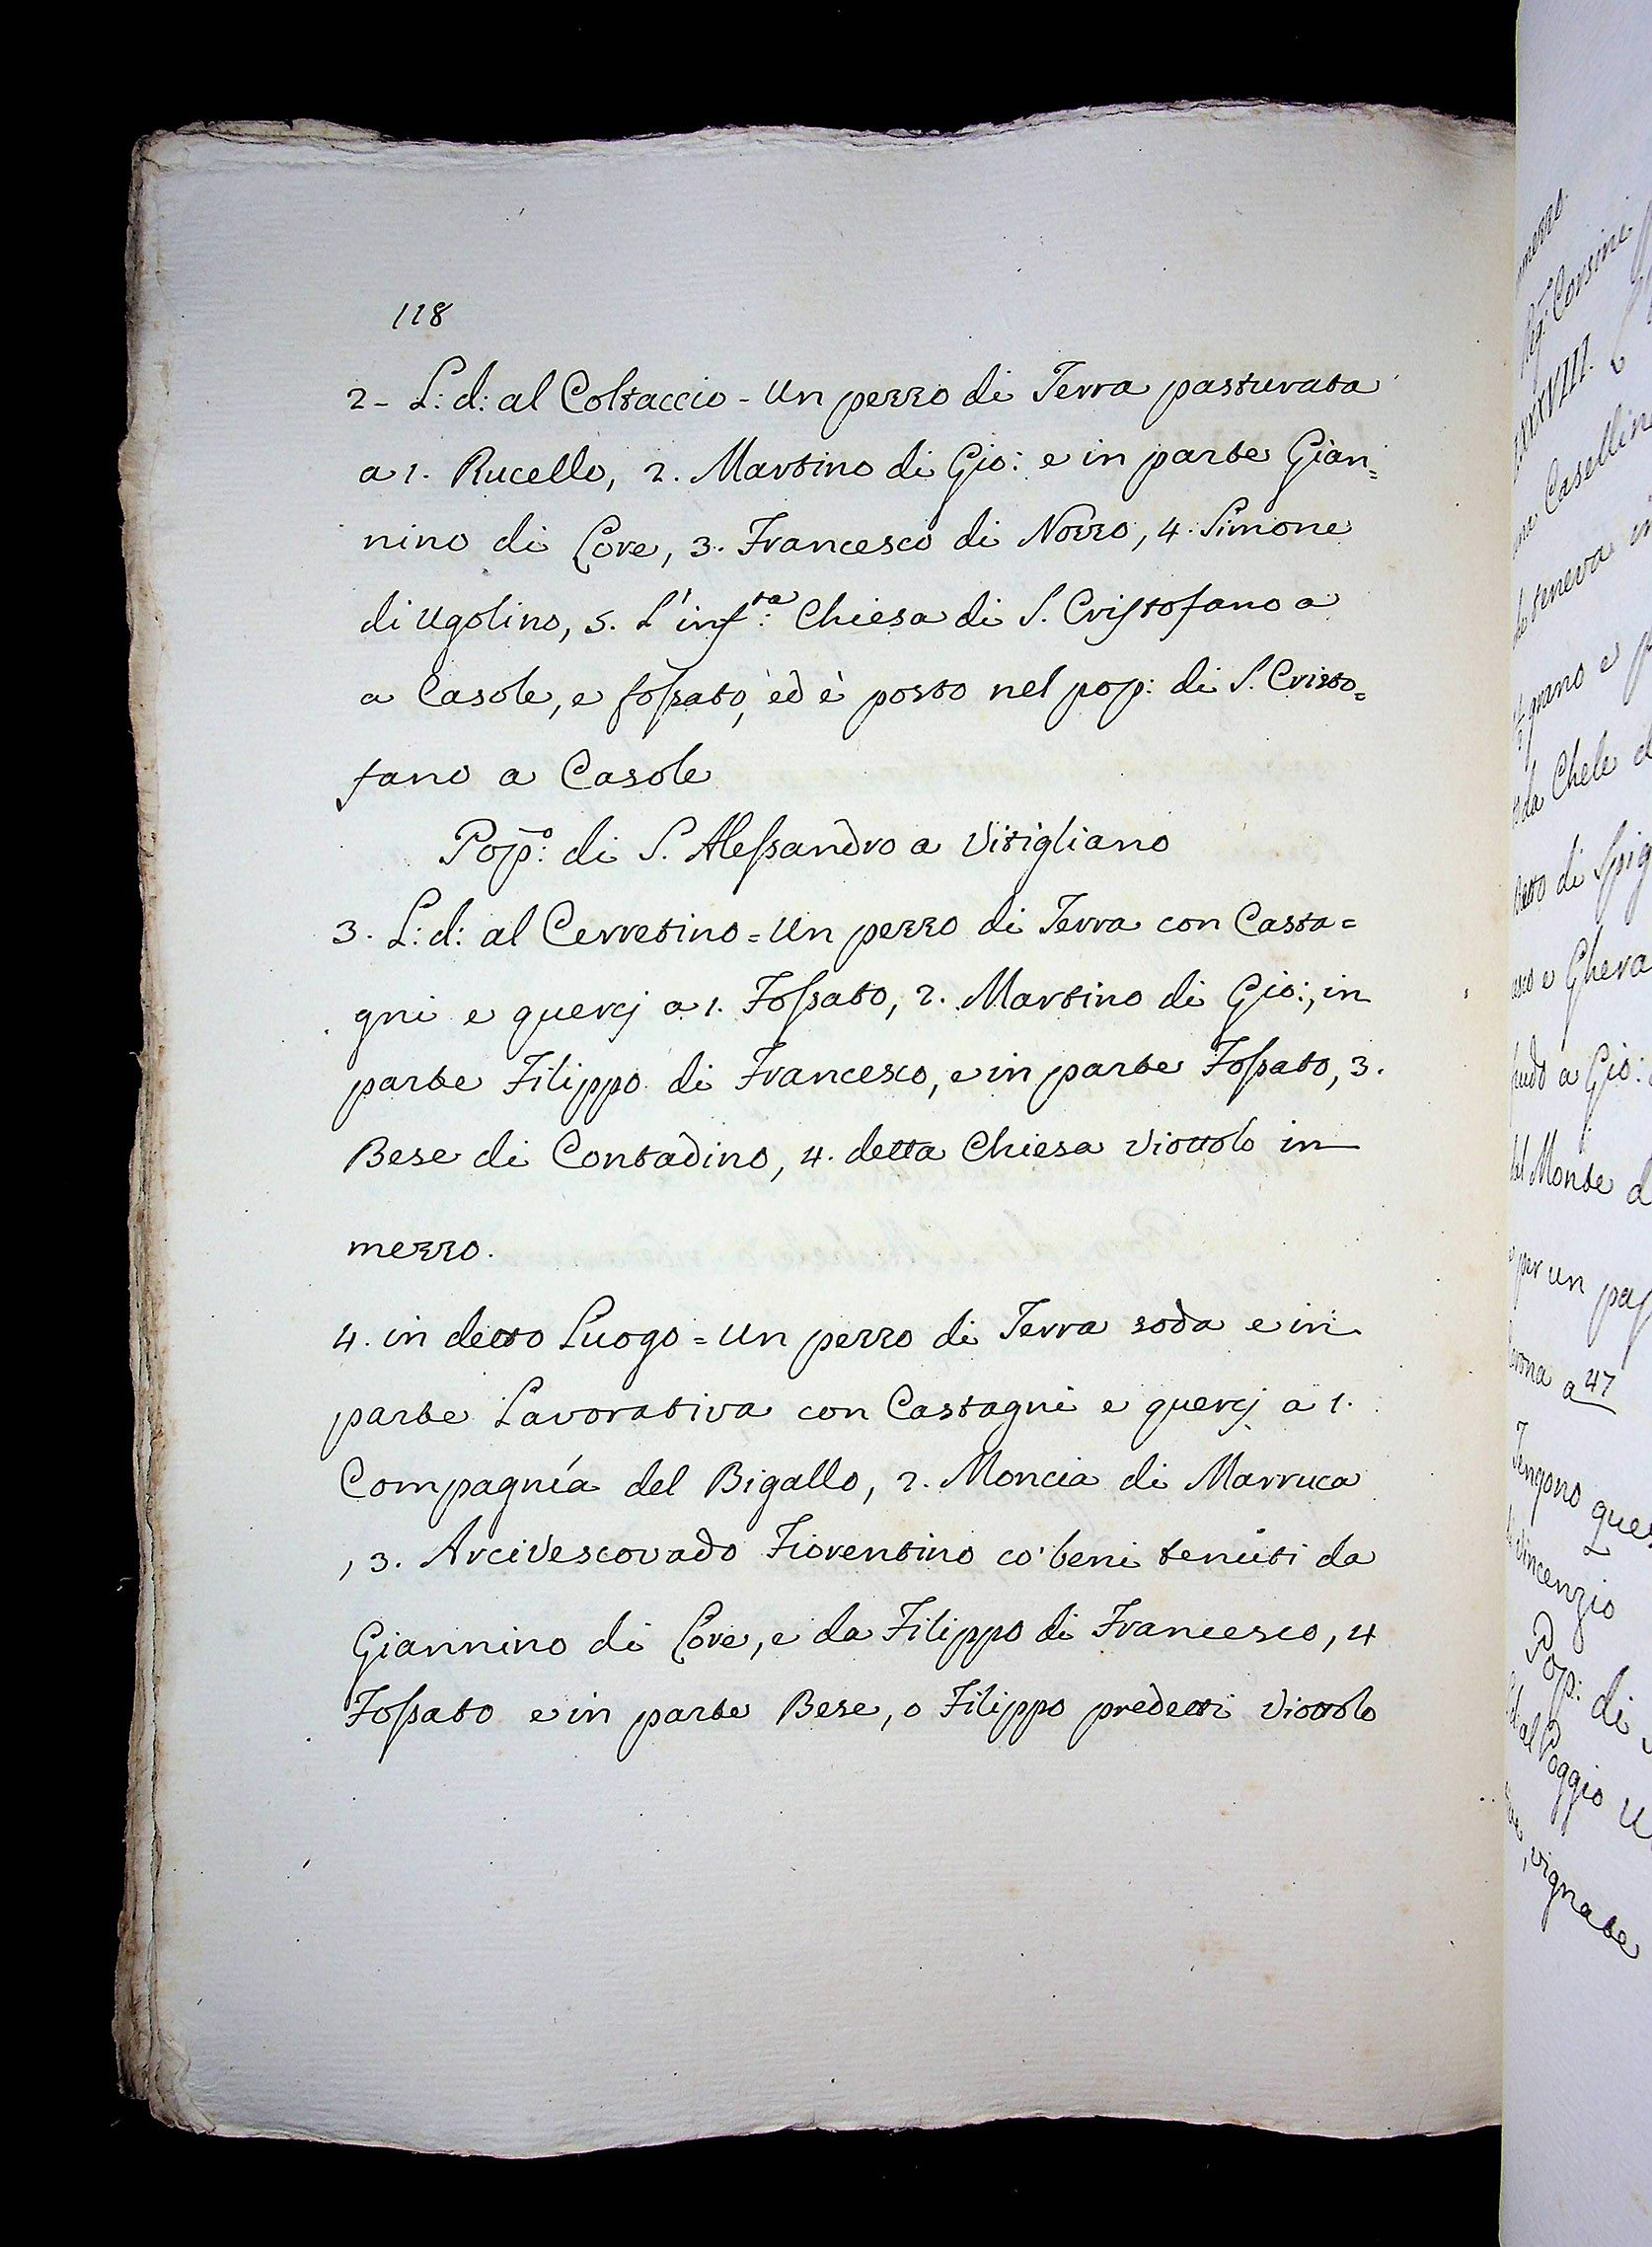 118
2- L: d: al Coltaccio - Un pezzo di Terra pasturata
a 1. Rucello, 2. Martino di Gio: e in parte Gian=
nino di Core, 3. Francesco di Nozzo, 4. Simone
di Ugolino, 5. L'inf:ta Chiesa di S. Cristofano a
a Casole, e fossato, ed è posto nel pop: di S. Cristo=
fano a Casole
Pop:o di S. Alessandro a Vitigliano
3. L: d: al Cerretino = Un pezzo di Terra con Casta=
gni e quercj a 1. Fossato, 2. Martino di Gio:, in
parte Filippo di Francesco, e in parte Fossato, 3.
Bese di Contadino, 4. detta Chiesa Viottolo in
mezzo.
4. in detto Luogo = Un pezzo di Terra soda e in
parte Lavorativa con Castagni e quercj a 1.
Compagnía del Bigallo, 2. Moncia di Marruca
, 3. Arcivescovado Fiorentino co' beni tenuti da
Giannino di Core, e da Filippo di Francesco, 4
Fossato e in parte Bese, o Filippo predetti Viottolo
Corsini
Casellin
teneva
grano e
da Chele
di Spig
e Ghera
a Gio:
Monte d
per un pas
a 47
Tengono ques
Vincenzio
Pop: di
al Poggio U
, vignate